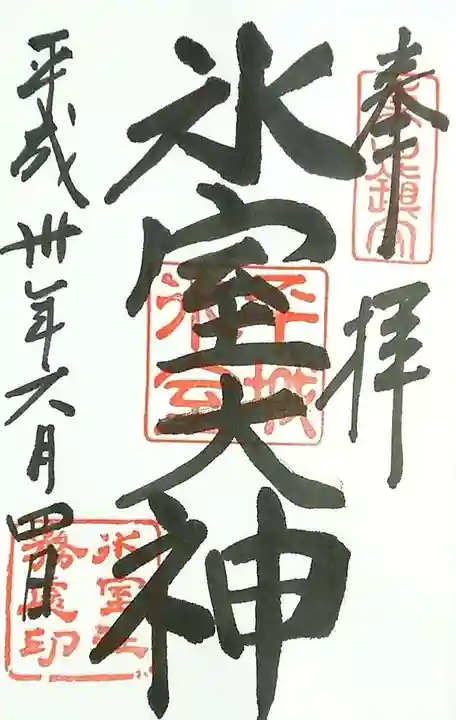 奉拝
氷室大神
平城
氷室
平成卅年六月四日
氷室社
務所印